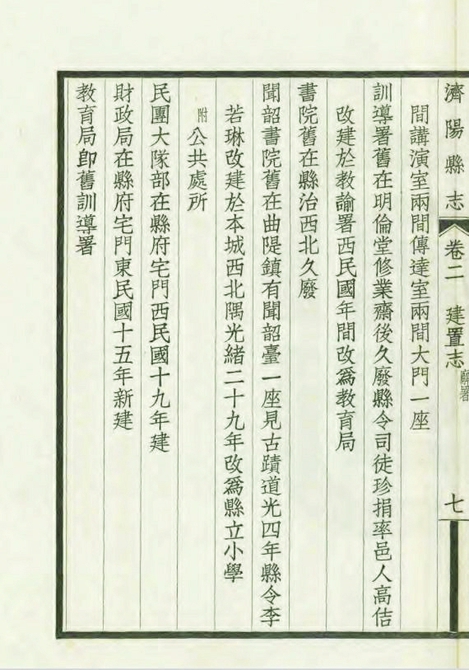 濟陽縣志
卷二 建置志 廨署
七
間講演室兩間傳達室兩間大門一座
訓導署舊在明倫堂修業齋後久廢縣令司徒珍捐率邑人高佶
改建於教諭署西民國年間改爲教育局
書院舊在縣治西北久廢
聞韶書院舊在曲隄鎮有聞韶臺一座見古蹟道光四年縣令李
若琳改建於本城西北隅光緒二十九年改爲縣立小學
附公共處所
民團大隊部在縣府宅門西民國十九年建
財政局在縣府宅門東民國十五年新建
教育局卽舊訓導署